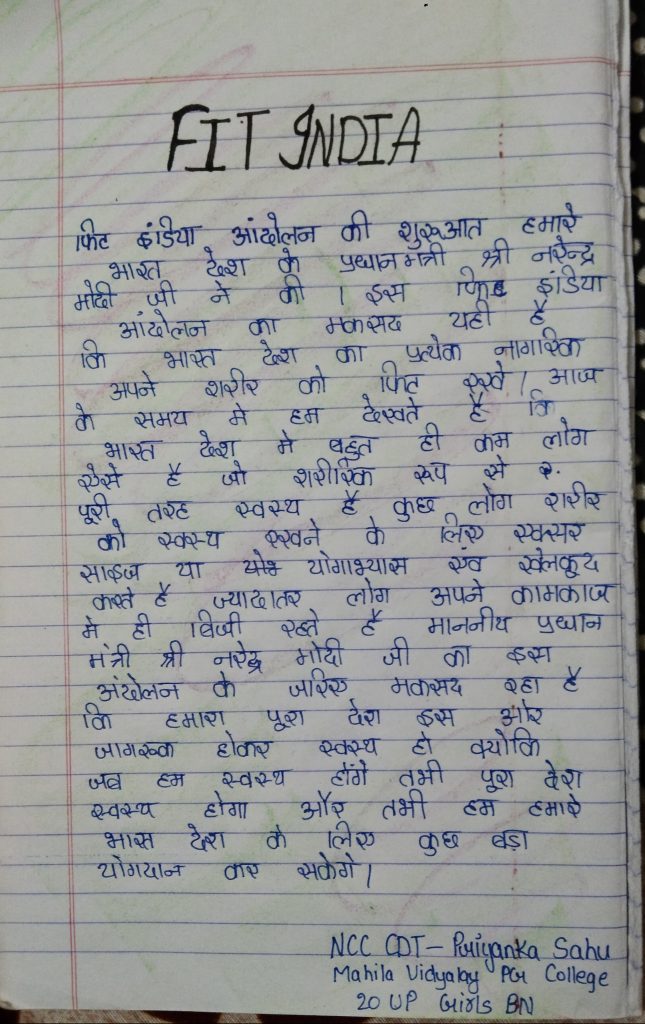 FIT INDIA
फिट इंडिया आंदोलन की शुरुआत हमारे
भारत देश के प्रधानमंत्री श्री नरेन्द्र
मोदी जी ने की । इस फिट इंडिया
आंदोलन का मकसद यही है
कि भारत देश का प्रत्येक नागरिक
अपने शरीर को फिट रखे । आज
के समय मे हम देखते है कि
भारत देश मे बहुत ही कम लोग
ऐसे है जो शारीरिक रूप से
पूरी तरह स्वस्थ है कुछ लोग शरीर
को स्वस्थ रखने के लिए एक्सर
साइज या योगाभ्यास एवं खेलकूद
करते है ज्यादातर लोग अपने कामकाज
मे ही बिजी रहते है माननीय प्रधान
मंत्री श्री नरेंद्र मोदी जी का इस
अंदोलन के जरिए मकसद रहा है
कि हमारा पूरा देश इस ओर
जागरूक होकर स्वस्थ हो क्योकि
जब हम स्वस्थ होंगे तभी पूरा देश
स्वस्थ होगा और तभी हम हमारे
भारत देश के लिए कुछ बड़ा
योगदान कर सकेगे ।
NCC CDT - Priyanka Sahu
Mahila Vidyalay PG College
20 UP Girls BN